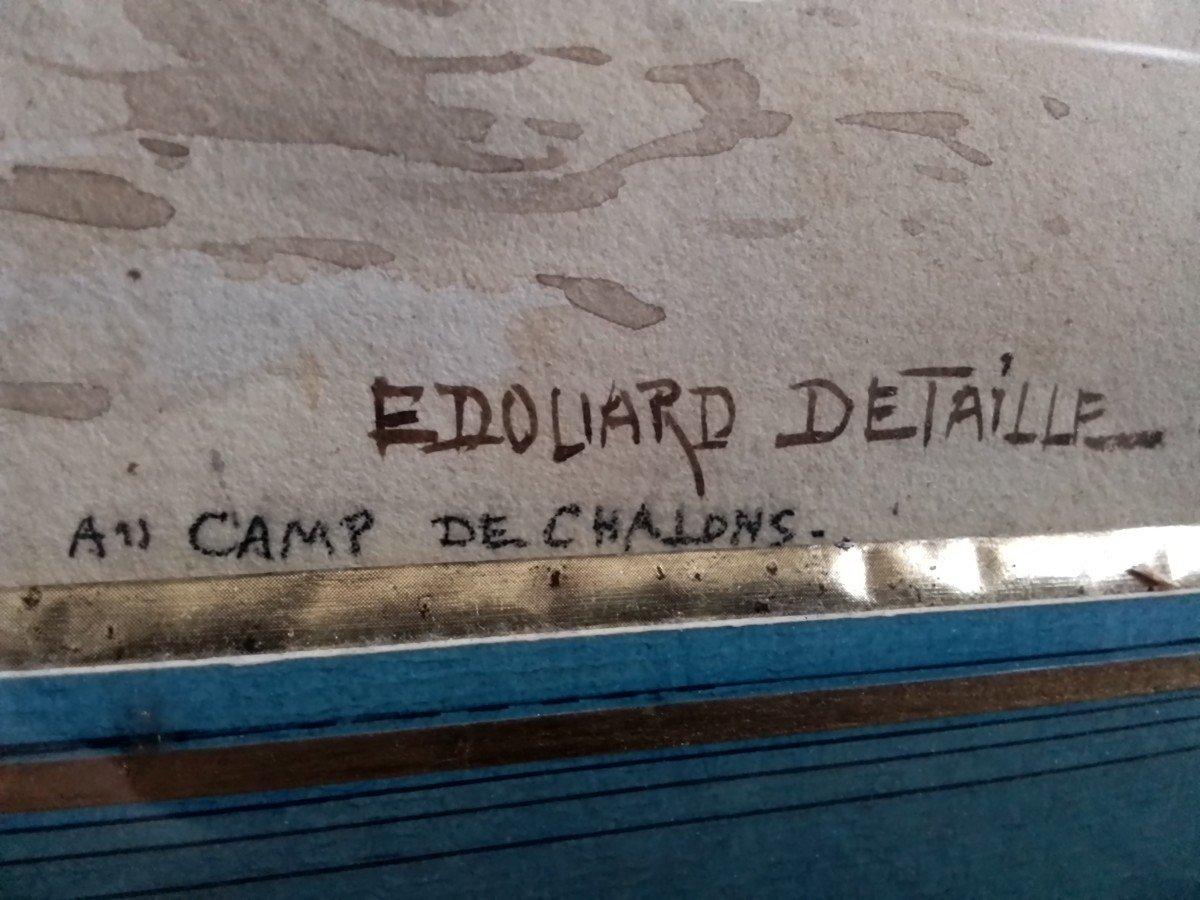 EDOUARD DETAiLLE
AU CAMP DE CHALONS.